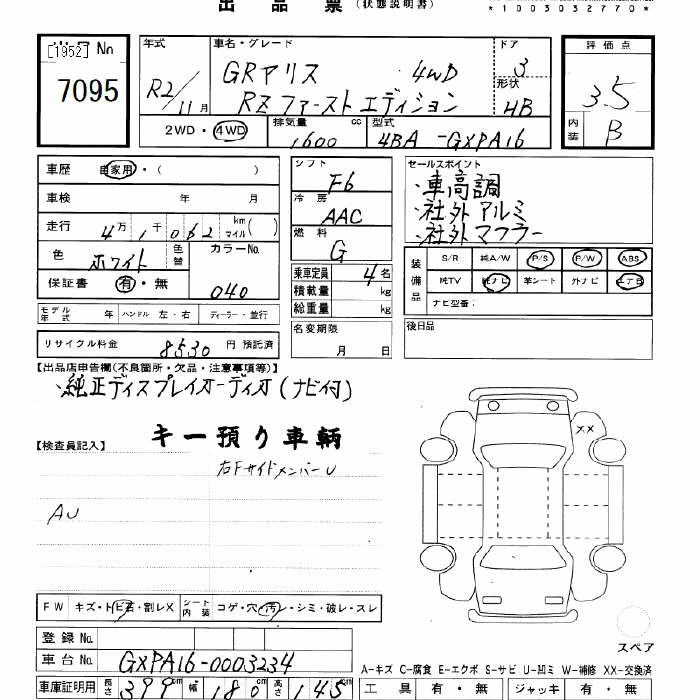 出品票 (状態説明書)
*1003032770*
[1952] No
7095
年式 R2/11月
車名・グレード GRヤリス 4WD
RZファーストエディション
ドア 3
形状 HB
評価点 3.5
内装 B
2WD・4WD
排気量 1600 cc
型式 4BA-GXPA16
車歴 自家用・( )
車検 年 月
走行 4万1千062 km マイル( )
色 ホワイト 色替
カラーNo. 040
保証書 有・無
モデル年式 年 ハンドル 左・右 ディーラー・並行
リサイクル料金 8530 円 預託済
シフト F6
冷房 AAC
燃料 G
乗車定員 4名
積載量 kg
総重量 kg
名変期限 月 日
セールスポイント
・車高調
・社外アルミ
・社外マフラー
装備品 S/R 純A/W P/S P/W ABS
純TV 純ナビ 革シート 外ナビ エアB
ナビ型番:
後日品
【出品店申告欄(不良箇所・欠品・注意事項等)】
・純正ディスプレイオーディオ(ナビ付)
キー預り車輌
【検査員記入】
右FサイドメンバーU
AU
XX
FW キズ・トビ石・割レX シート内装 コゲ・穴・汚レ・シミ・破レ・スレ
登録No.
車台No. GXPA16-0003234
車庫証明用 長さ 399cm 幅 180cm 高さ 145cm
スペア
A-キズ C-腐食 E-エクボ S-サビ U-凹ミ W-補修 XX-交換済
工具 有・無 ジャッキ 有・無